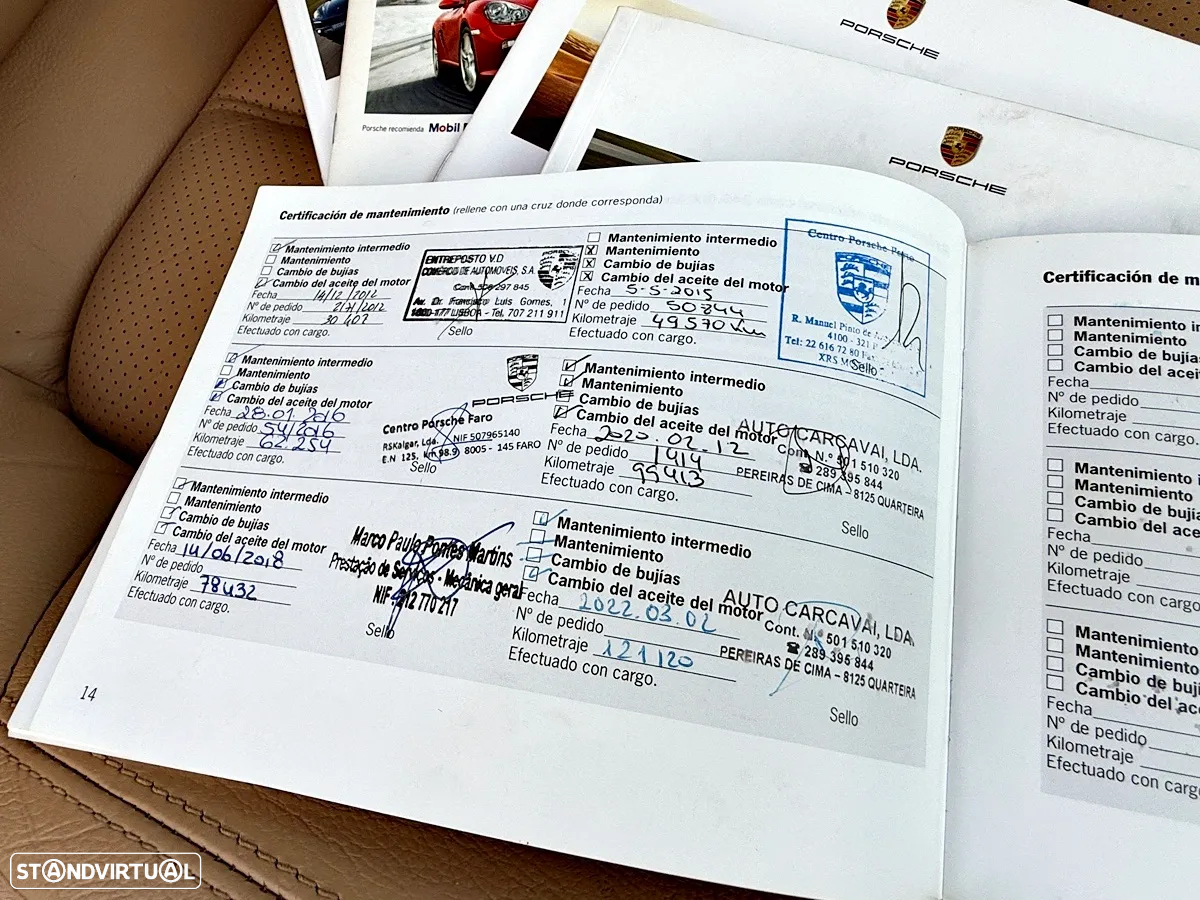 PORSCHE
PORSCHE
Porsche recomienda Mobil
Certificación de mantenimiento (rellene con una cruz donde corresponda)
Mantenimiento intermedio
Mantenimiento
Cambio de bujías
Cambio del aceite del motor
Fecha 14/12/2012
Nº de pedido
Kilometraje 30 403
Efectuado con cargo.
ENTREPOSTO V.D
COMÉRCIO DE AUTOMÓVEIS, S.A.
Cont. 506 297 845
Av. Dr. Francisco Luis Gomes, 1
LISBOA - Tel. 707 211 911
Sello
Mantenimiento intermedio
X Mantenimiento
X Cambio de bujías
X Cambio del aceite del motor
Fecha 5-5-2015
Nº de pedido 50844
Kilometraje 49570 Km
Efectuado con cargo.
Centro Porsche Porto
R. Manuel Pinto de
4100 - 321 P
Tel: 22 616 72 80
XRS M
Sello
Mantenimiento intermedio
Mantenimiento
Cambio de bujías
Cambio del aceite del motor
Fecha 28.01.2016
Nº de pedido 54/2016
Kilometraje 62.254
Efectuado con cargo.
PORSCHE
Centro Porsche Faro
RSKalgar, Lda. NIF 507965140
E.N 125, km 98.9 8005 - 145 FARO
Sello
Mantenimiento intermedio
Mantenimiento
Cambio de bujías
Cambio del aceite del motor
Fecha 2020.02.12
Nº de pedido 1914
Kilometraje 99413
Efectuado con cargo.
AUTO CARCAVAI, LDA.
Cont. N.º 501 510 320
☎ 289 395 844
PEREIRAS DE CIMA – 8125 QUARTEIRA
Sello
Mantenimiento intermedio
Mantenimiento
Cambio de bujías
Cambio del aceite del motor
Fecha 14/06/2018
Nº de pedido
Kilometraje 78432
Efectuado con cargo.
Marco Paulo Pontes Martins
Prestação de Serviços - Mecânica geral
NIF: 212 770 217
Sello
Mantenimiento intermedio
Mantenimiento
Cambio de bujías
Cambio del aceite del motor
Fecha 2022.03.02
Nº de pedido
Kilometraje 121120
Efectuado con cargo.
AUTO CARCAVAI, LDA.
Cont. N.º 501 510 320
☎ 289 395 844
PEREIRAS DE CIMA – 8125 QUARTEIRA
Sello
14
Certificación de m
Mantenimiento i
Mantenimiento
Cambio de bujía
Cambio del aceit
Fecha
Nº de pedido
Kilometraje
Efectuado con cargo.
Mantenimiento i
Mantenimiento
Cambio de bujía
Cambio del ace
Fecha
Nº de pedido
Kilometraje
Efectuado con cargo
Mantenimiento
Mantenimiento
Cambio de buj
Cambio del ac
Fecha
Nº de pedido
Kilometraje
Efectuado con carg
STANDVIRTUAL